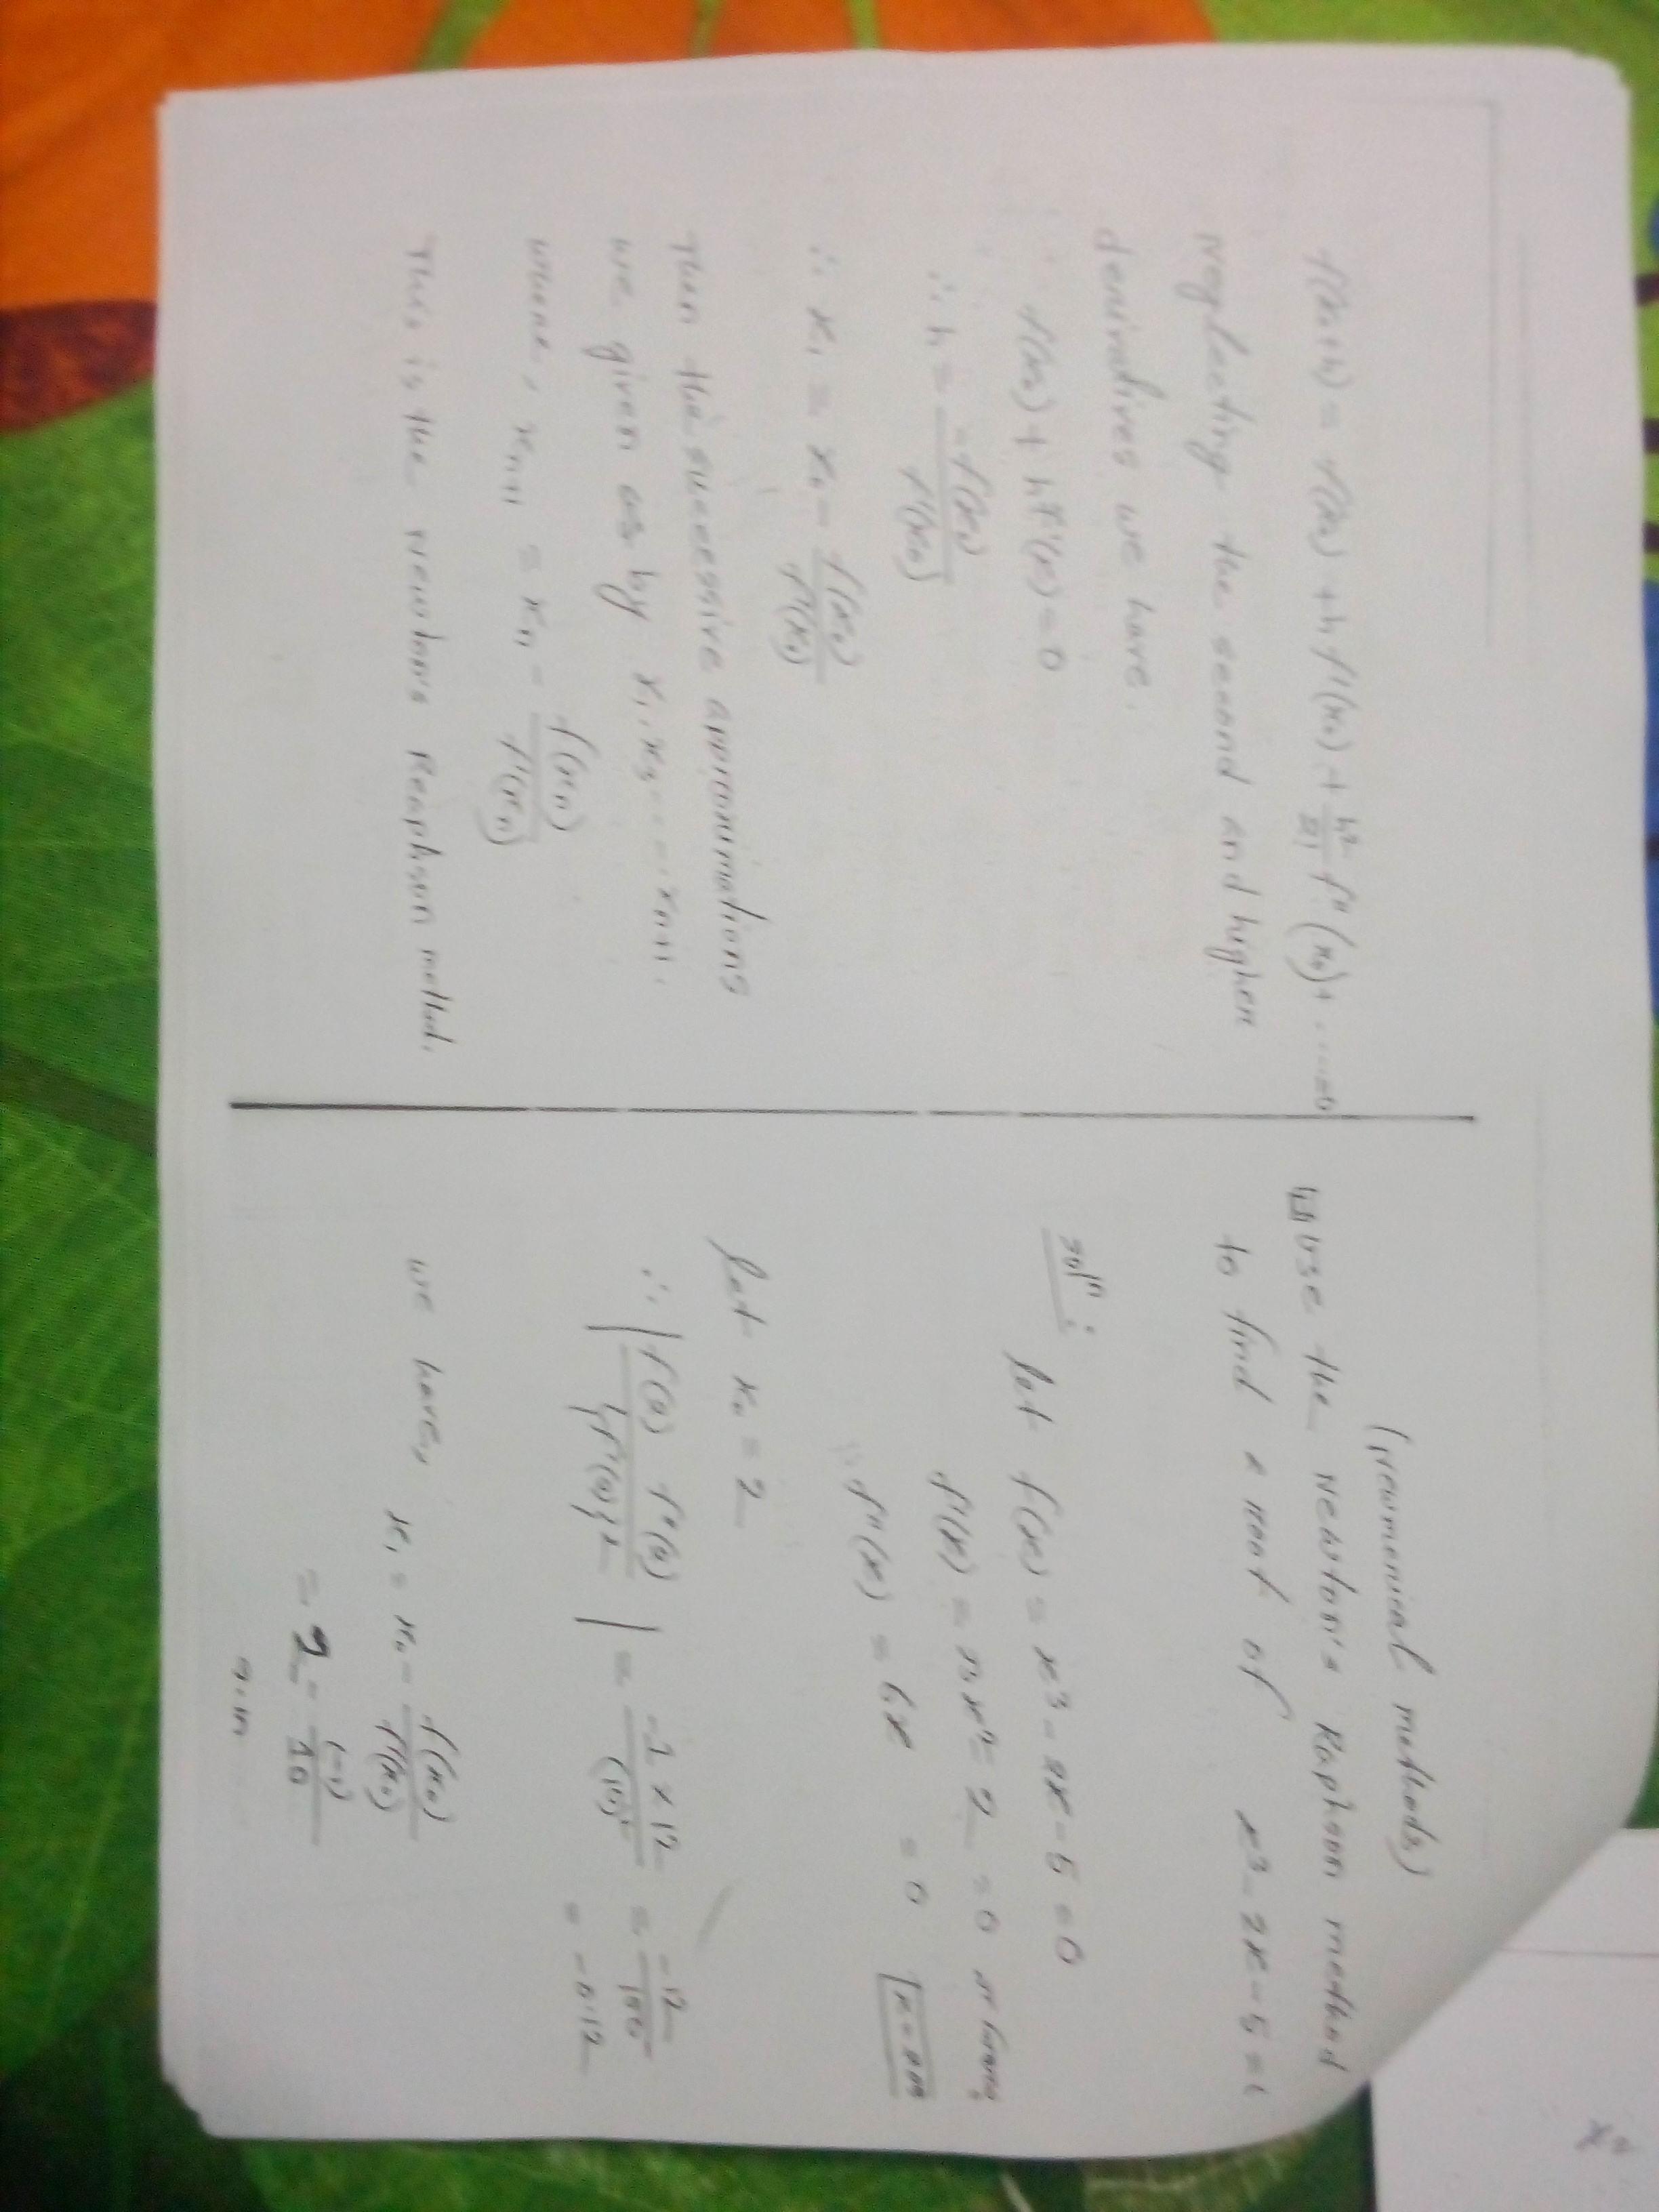 f(x₀+h) = f(x₀) + h f'(x₀) + h²/2! f''(x₀) + ......=0
Neglecting the second and higher
derivatives we have.
f(x₀) + hf'(x) = 0
∴ h = -f(x₀)/f'(x₀)
∴ x₁ = x₀ - f(x₀)/f'(x₀)
Then the successive approximations
we given as by x₁, x₃ ...... xₙ₊₁.
where, xₙ₊₁ = xₙ - f(xₙ)/f'(xₙ)
This is the Newton's Reaphson method.
(Newmerical methods)
Use the Newton's Raphson method
to find a root of x³ - 2x - 5 =
solⁿ :
let f(x) = x³ - 2x - 5 = 0
f'(x) = 3x² - 2 = 0
f''(x) = 6x = 0
let x₀ = 2
∴ | f(2) f''(2) / {f'(2)}² | = -1 × 12 / (10)² = -12/100
= -0.12
we have, x₁ = x₀ - f(x₀)/f'(x₀)
= 2 - (-1)/10
x₂